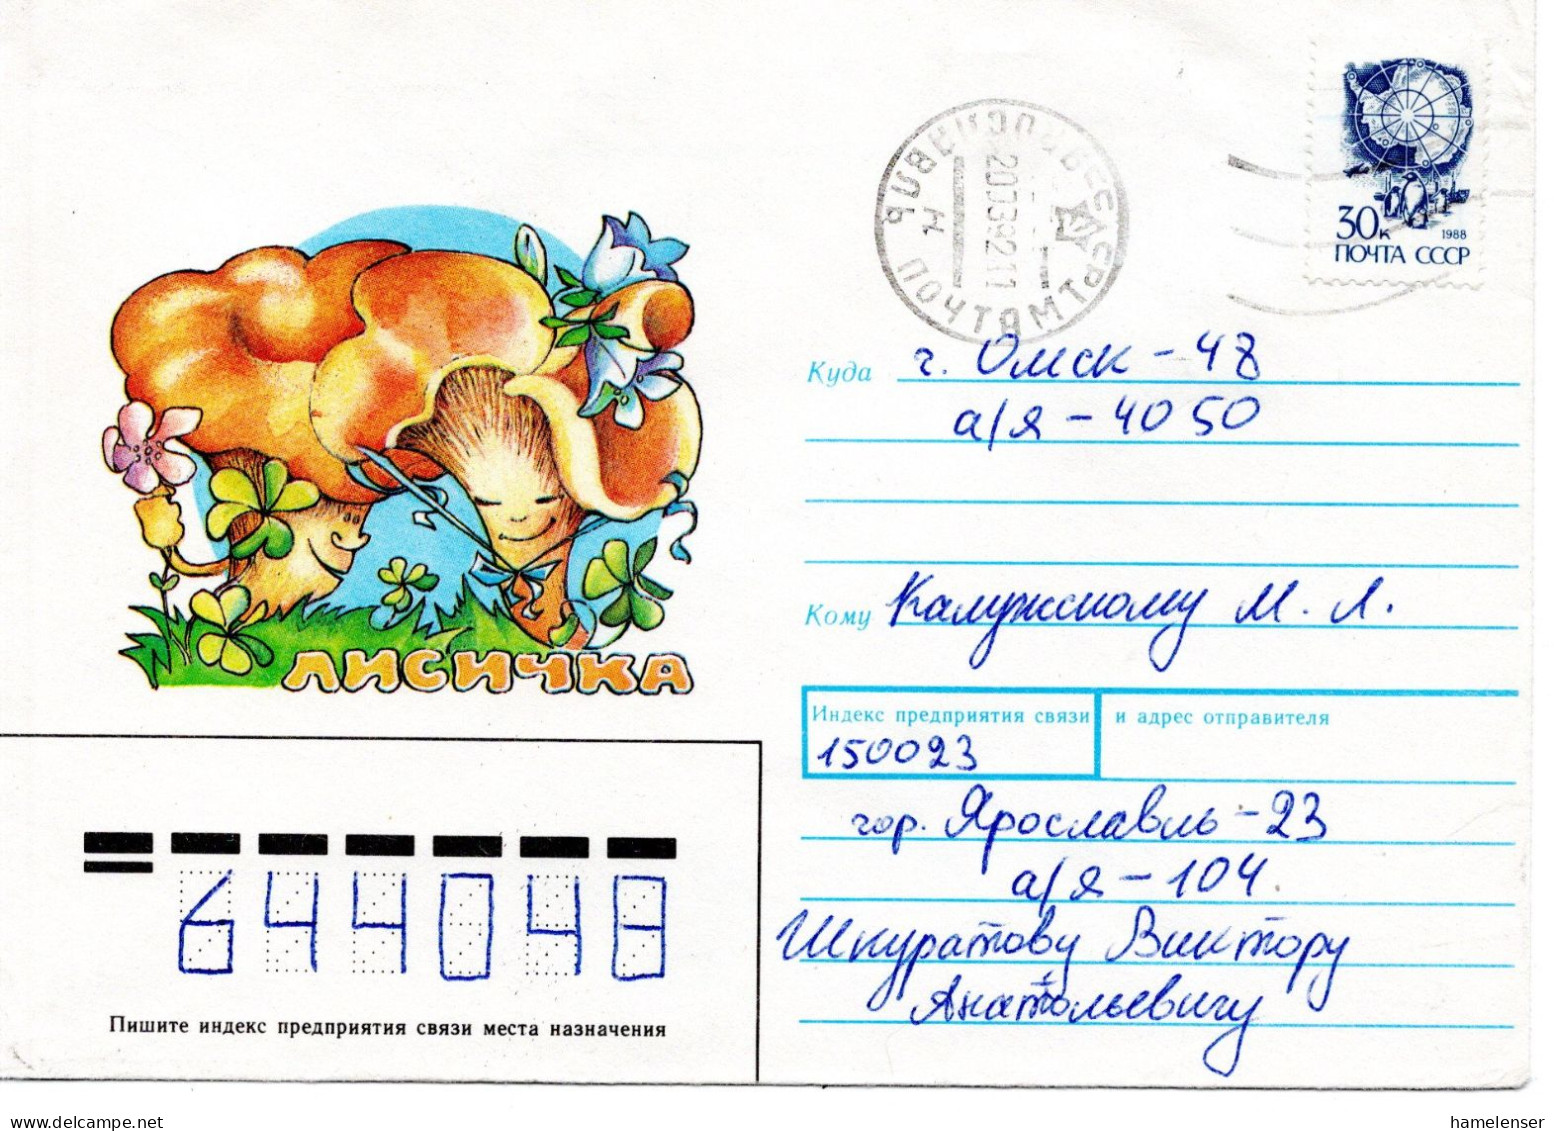 30к 1988
ПОЧТА СССР
ЯРОСЛАВЛЬ
ПОЧТАМТ
Н
Куда г. Омск - 48
а/я - 4050
Кому Калужскому М. Л.
ЛИСИЧКА
Индекс предприятия связи и адрес отправителя
150023
гор. Ярославль - 23
а/я - 104.
Шкуратову Виктору
Анатольевичу
644048
Пишите индекс предприятия связи места назначения
hamelenser